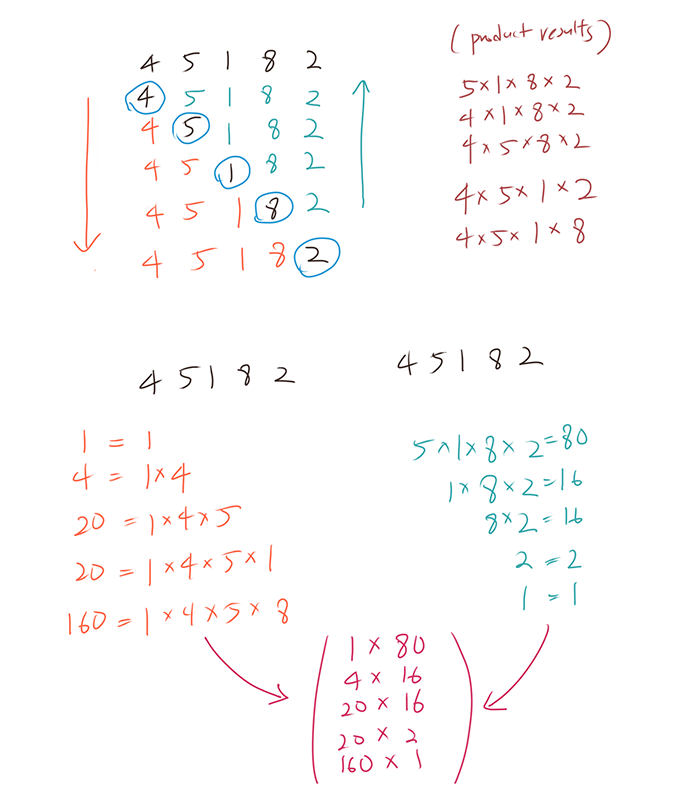 4 5 1 8 2
4 5 1 8 2
4 5 1 8 2
4 5 1 8 2
4 5 1 8 2
4 5 1 8 2
(product results)
5×1×8×2
4×1×8×2
4×5×8×2
4×5×1×2
4×5×1×8
4 5 1 8 2
1 = 1
4 = 1×4
20 = 1×4×5
20 = 1×4×5×1
160 = 1×4×5×8
4 5 1 8 2
5×1×8×2=80
1×8×2=16
8×2=16
2=2
1=1
1×80
4×16
20×16
20×2
160×1